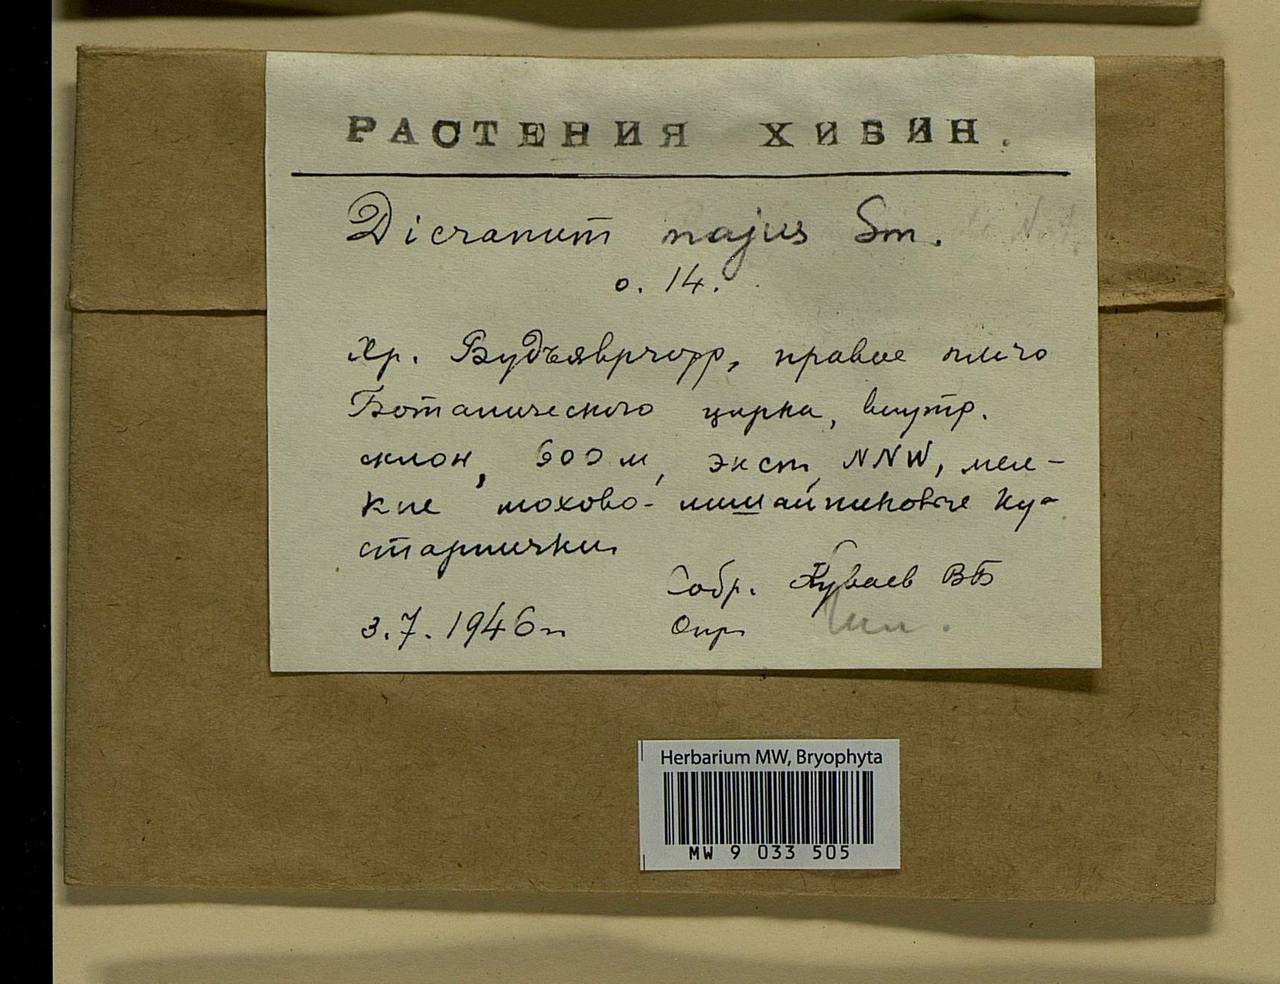 РАСТЕНИЯ ХИБИН.
Dicranum majus Sm.
о. 14.
Хр. Будъяврчорр, правое плечо
Ботанического цирка, внутр.
склон, 600 м, эксп. NNW, мел-
кие мохово-лишайниковые ку-
старнички
Собр. Куваев ВБ
3.7.1946 г.
Опр.
Herbarium MW, Bryophyta
MW 9 033 505